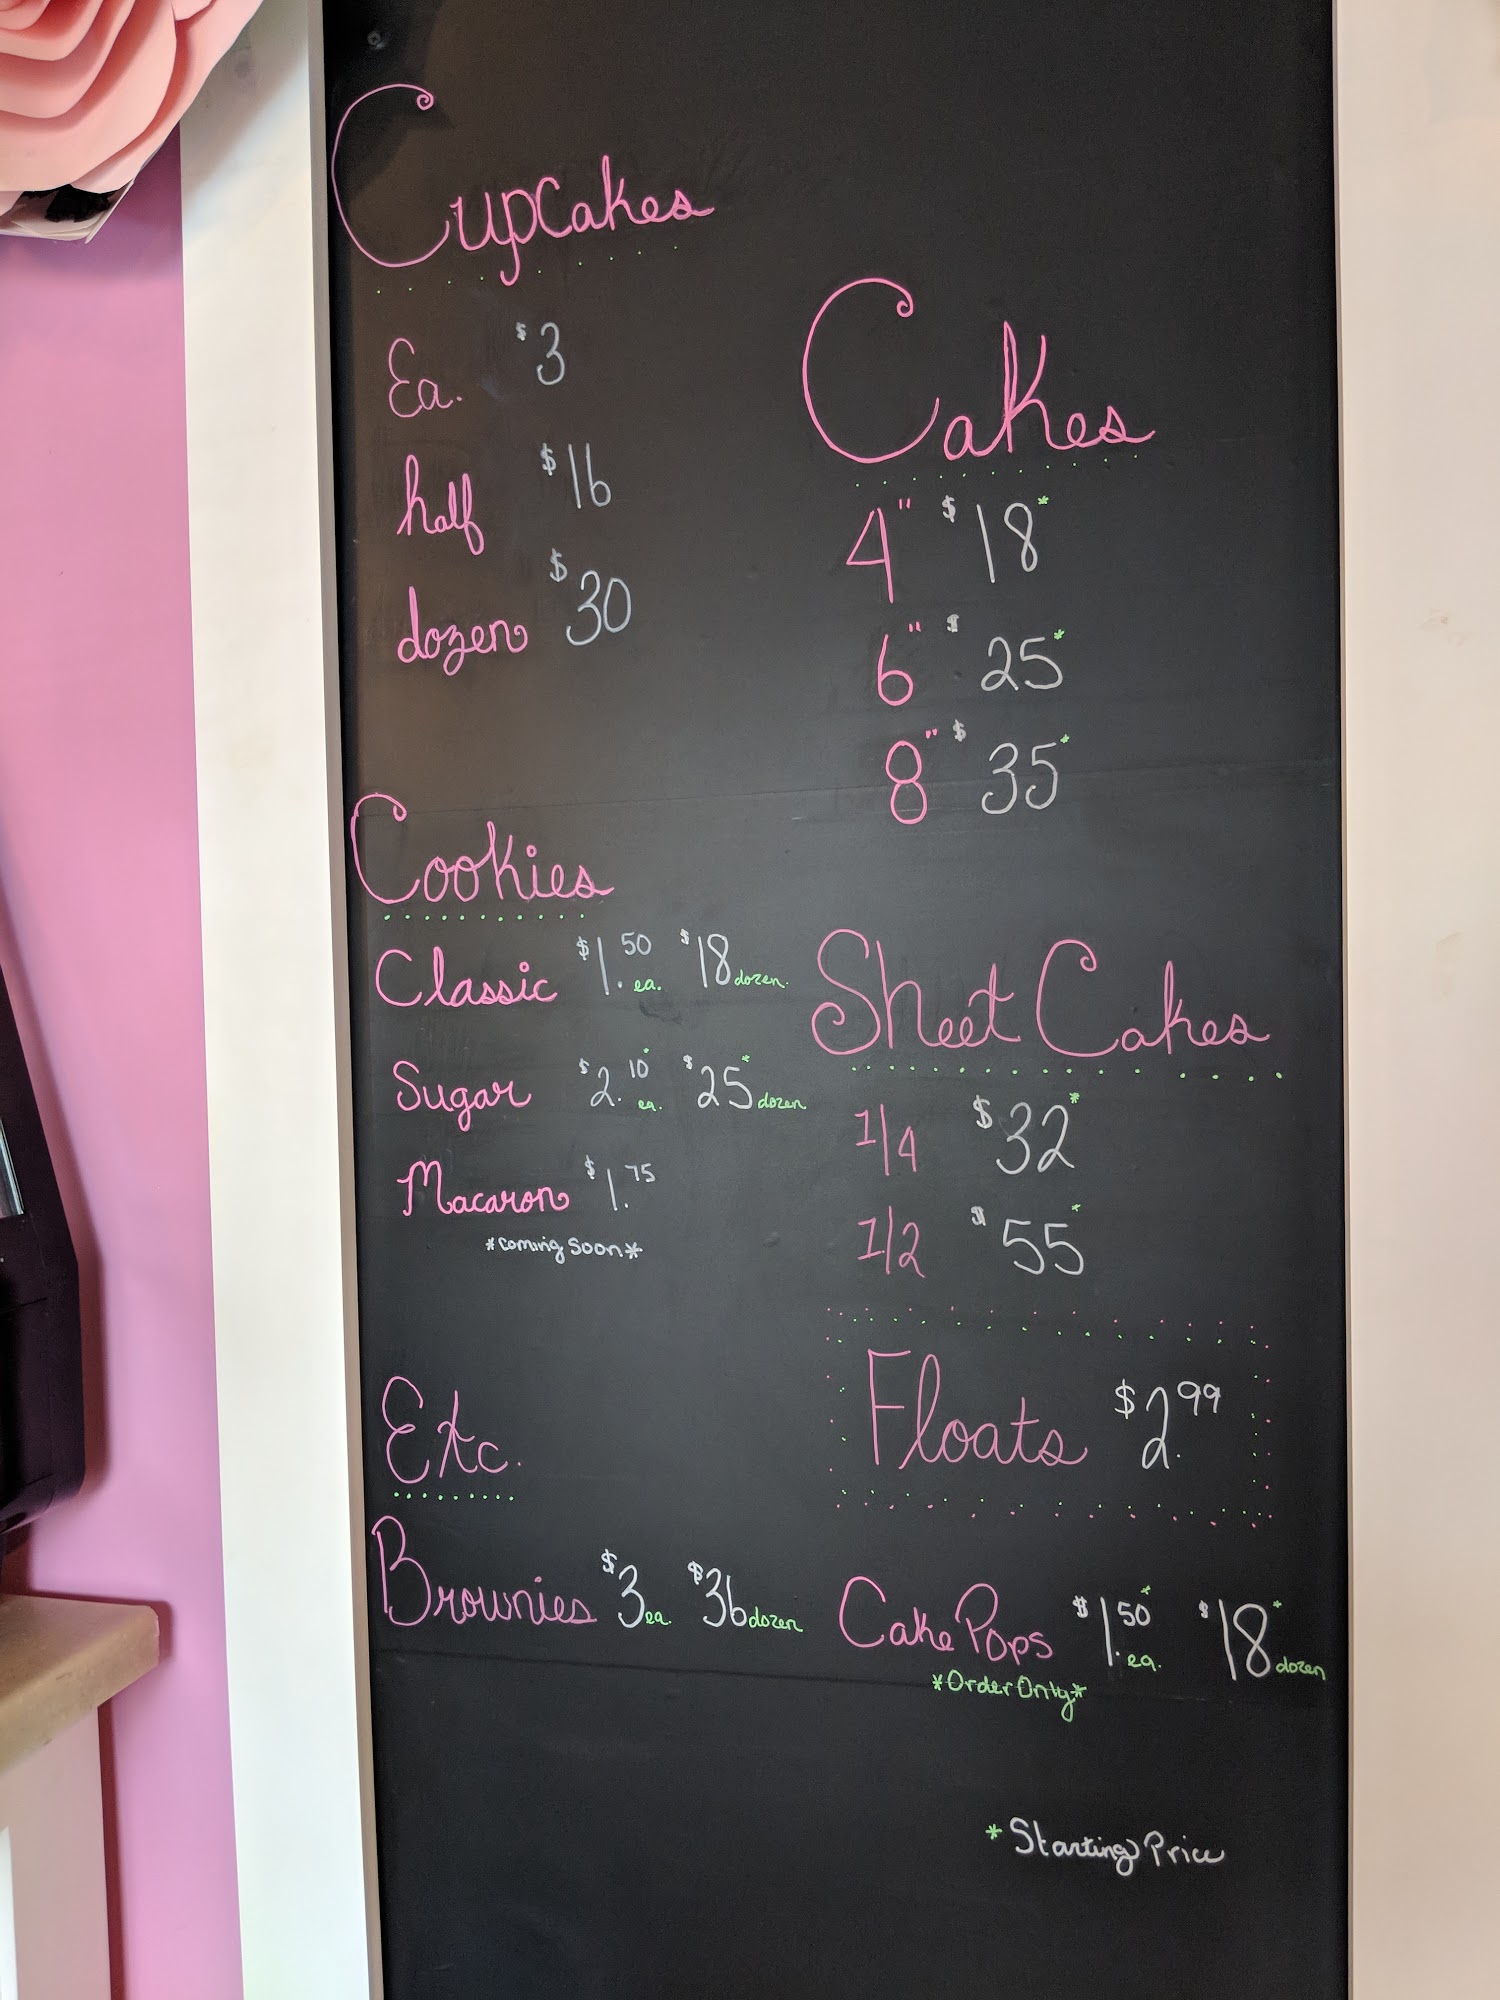 Cupcakes
Ea. $3
half $16
dozen $30
Cakes
4" $18*
6" $25*
8" $35*
Cookies
Classic $1.50 ea. $18 dozen.
Sugar $2.10* ea. $25* dozen
Macaron $1.75
*coming Soon*
Sheet Cakes
1/4 $32*
1/2 $55*
Floats $2.99
Etc.
Brownies $3 ea. $36 dozen
Cake Pops $1.50* ea. $18* dozen
*Order Only*
*Starting Price